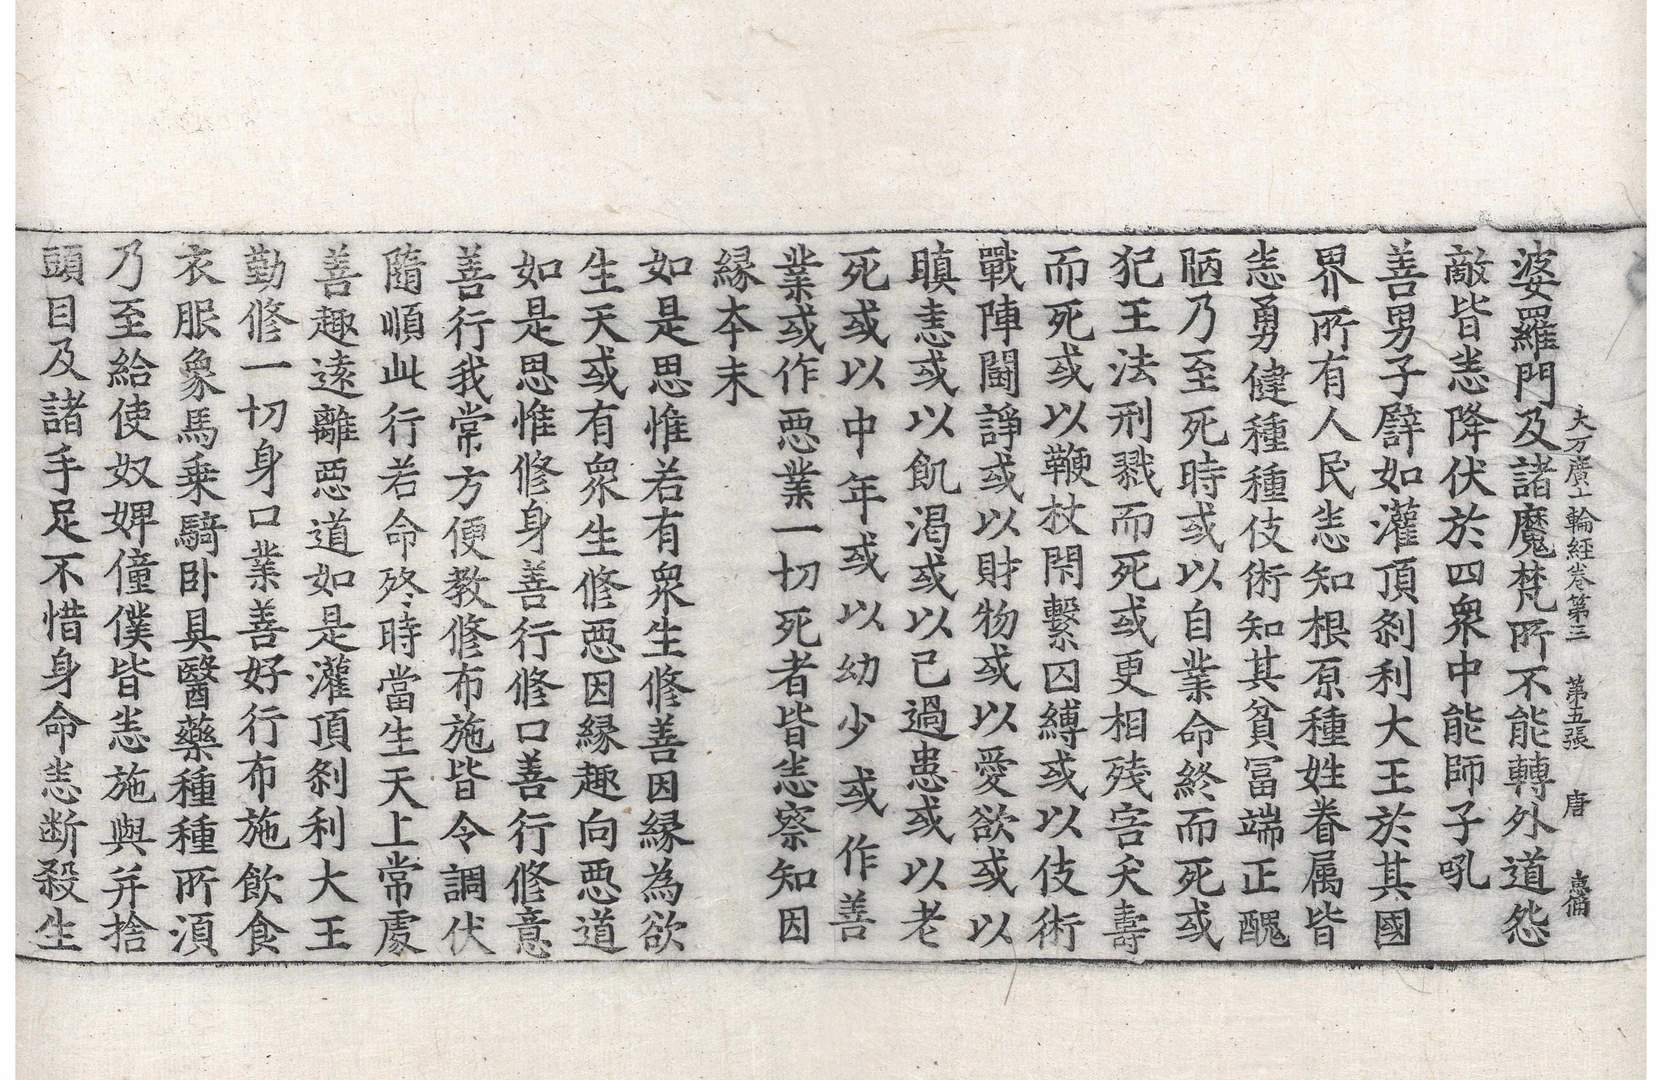 大方廣十輪經卷第三　第五張　唐
婆羅門及諸魔梵所不能轉外道怨
敵皆悉降伏於四衆中能師子吼
善男子譬如灌頂刹利大王於其國
界所有人民悉知根原種姓眷属皆
悉勇健種種伎術知其貧冨端正醜
陋乃至死時或以自業命終而死或
犯王法刑戮而死或更相殘害夭壽
而死或以鞭杖閇繫囚縛或以伎術
戰陣鬪諍或以財物或以愛欲或以
瞋恚或以飢渴或以已過患或以老
死或以中年或以幼少或作善
業或作惡業一切死者皆悉察知因
縁本末
如是思惟若有衆生修善因縁為欲
生天或有衆生修惡因縁趣向惡道
如是思惟修身善行修口善行修意
善行我常方便教修布施皆令調伏
隨順此行若命終時當生天上常處
善趣遠離惡道如是灌頂刹利大王
勤修一切身口業善好行布施飲食
衣服象馬乗騎卧具醫藥種種所湏
乃至給使奴婢僮僕皆悉施與并捨
頭目及諸手足不惜身命悉断殺生